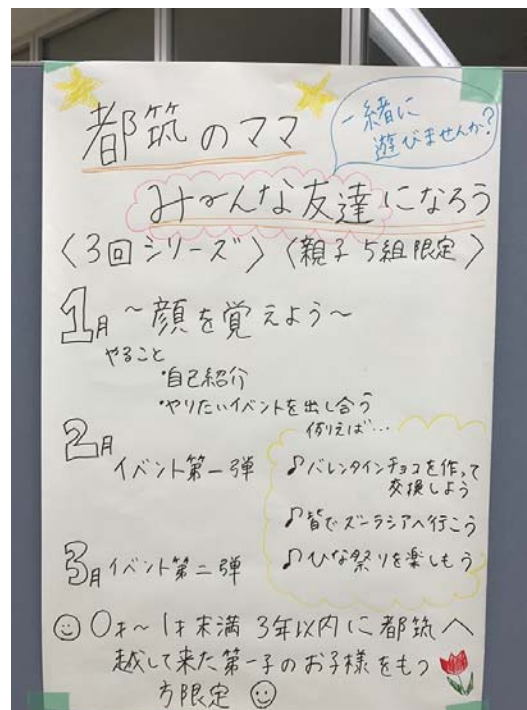 都筑のママ
一緒に
遊びませんか?
み〜んな友達になろう
〈3回シリーズ〉〈親子5組限定〉
1月 〜顔を覚えよう〜
やること
・自己紹介
・やりたいイベントを出し合う
2月
イベント第一弾
例えば…
♪バレンタインチョコを作って
交換しよう
♪皆でズーラシアへ行こう
♪ひな祭りを楽しもう
3月 イベント第二弾
0才〜1才未満 3年以内に都筑へ
越して来た第一子のお子様をもつ
方限定